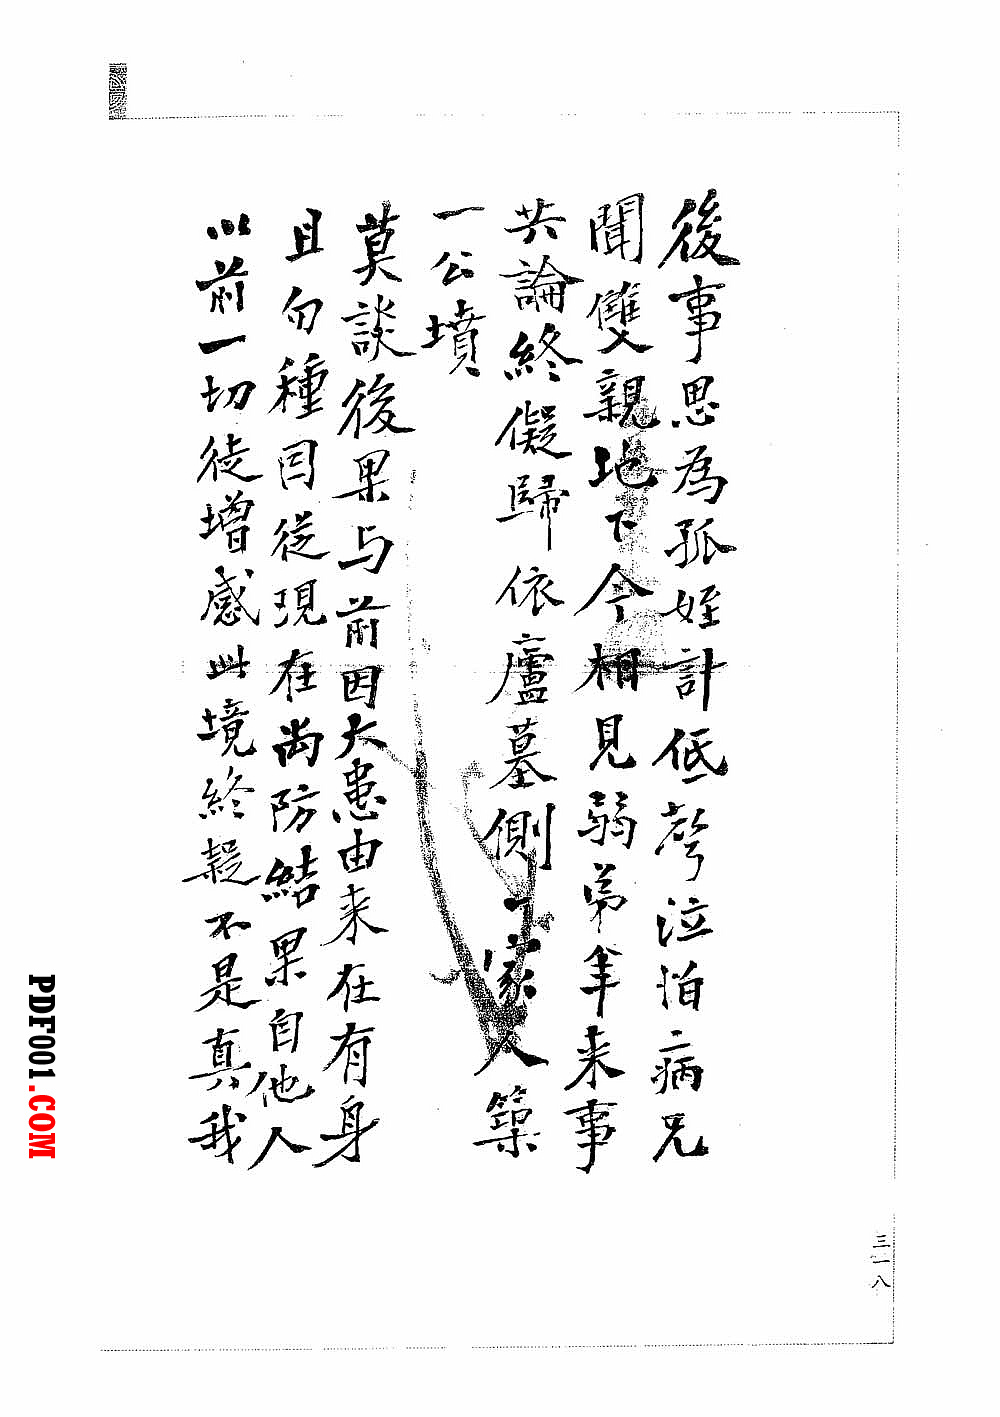 後事思為孤姪計低聲泣怕病兄
聞雙親地下今相見弱弟年來事
共論終儗歸依廬墓側一家人築
一公墳
莫談後果与前因大患由来在有身
且勿種因從現在尚防結果自他人
以前一切徒增感此境終疑不是真我
三一八
PDF001.COM